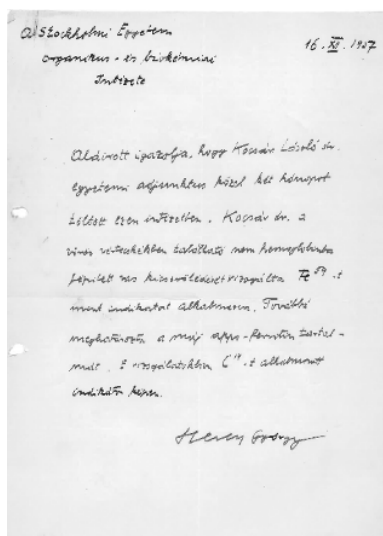 A Stockholmi Egyetem
organikus- és biokémiai
Intézete
16. XI. 1957
Alulírott igazolja, hogy Kocsár László dr.
egyetemi adjunktus közel két hónapot
töltött ezen intézetben. Kocsár dr. a
vörös vértestekben található nem hemoglobinba
épített vas kicserélődését vizsgálta Fe⁵⁹-t
mint indikátort alkalmazva. Továbbá
meghatározta a máj apo-ferritin tartal-
mát. E vizsgálatokban C¹⁴-t alkalmazott
indikátor képen.
Hevesy György